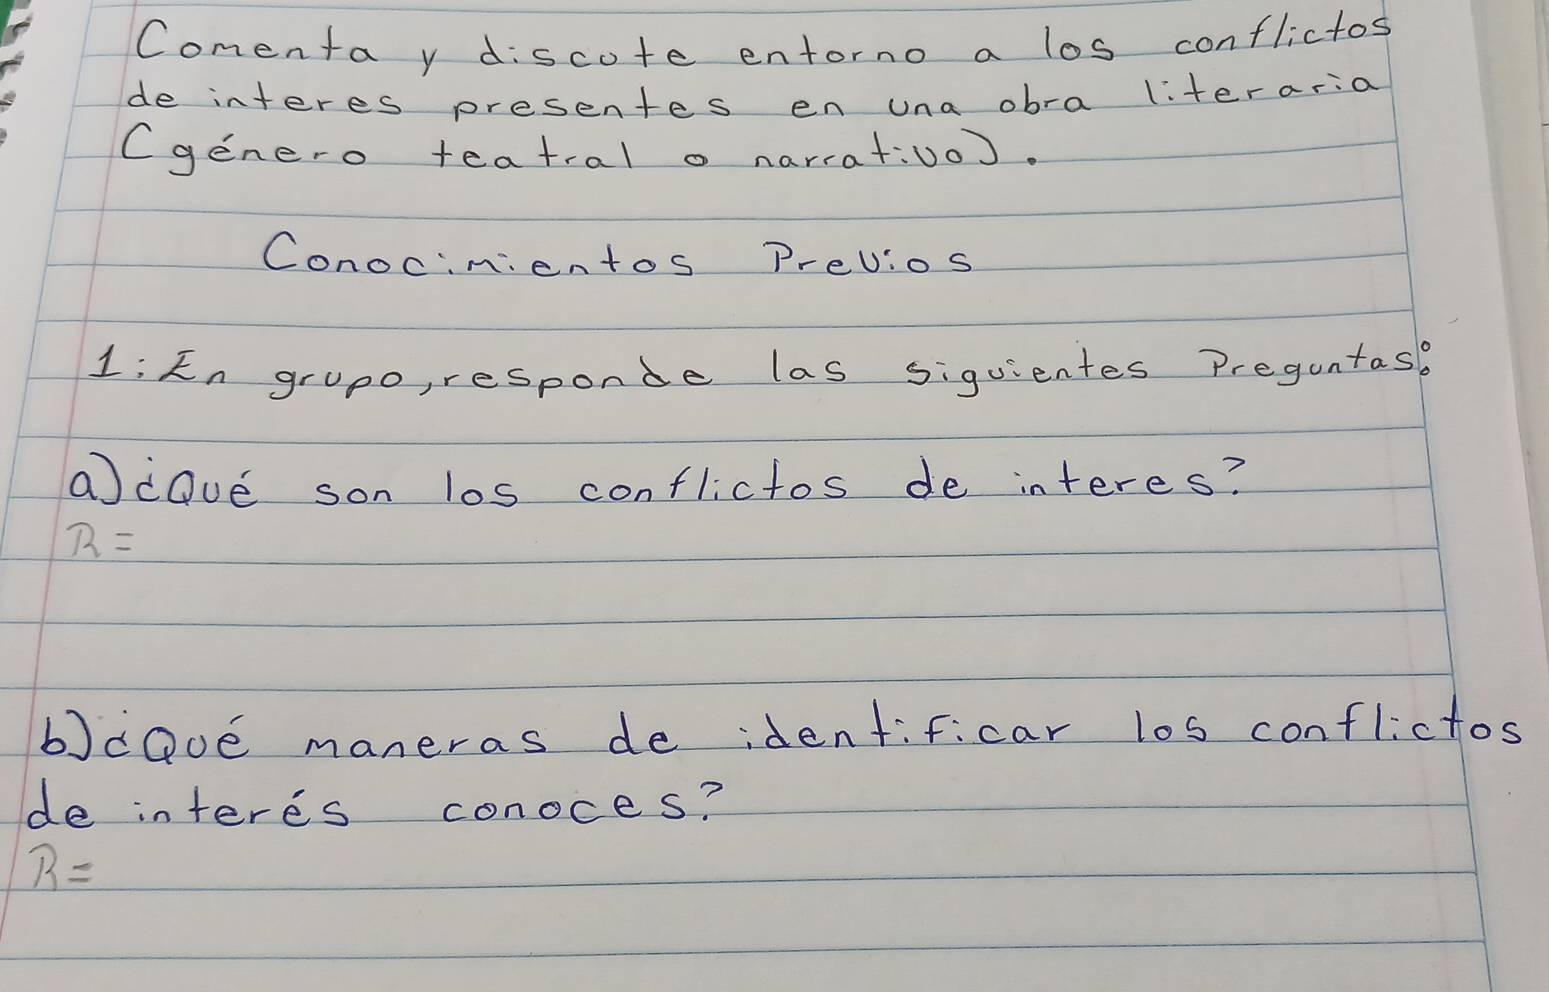 Comenta y discute entorno a los conflictos
de interes presentes en una obra literaria
(género teatral o narrativo).
Conocimientos Previos
1: En grupo, responde las siguientes Preguntas:
a) ¿Qué son los conflictos de interes?
R=
b) ¿Qué maneras de identificar los conflictos
de interés conoces?
R=